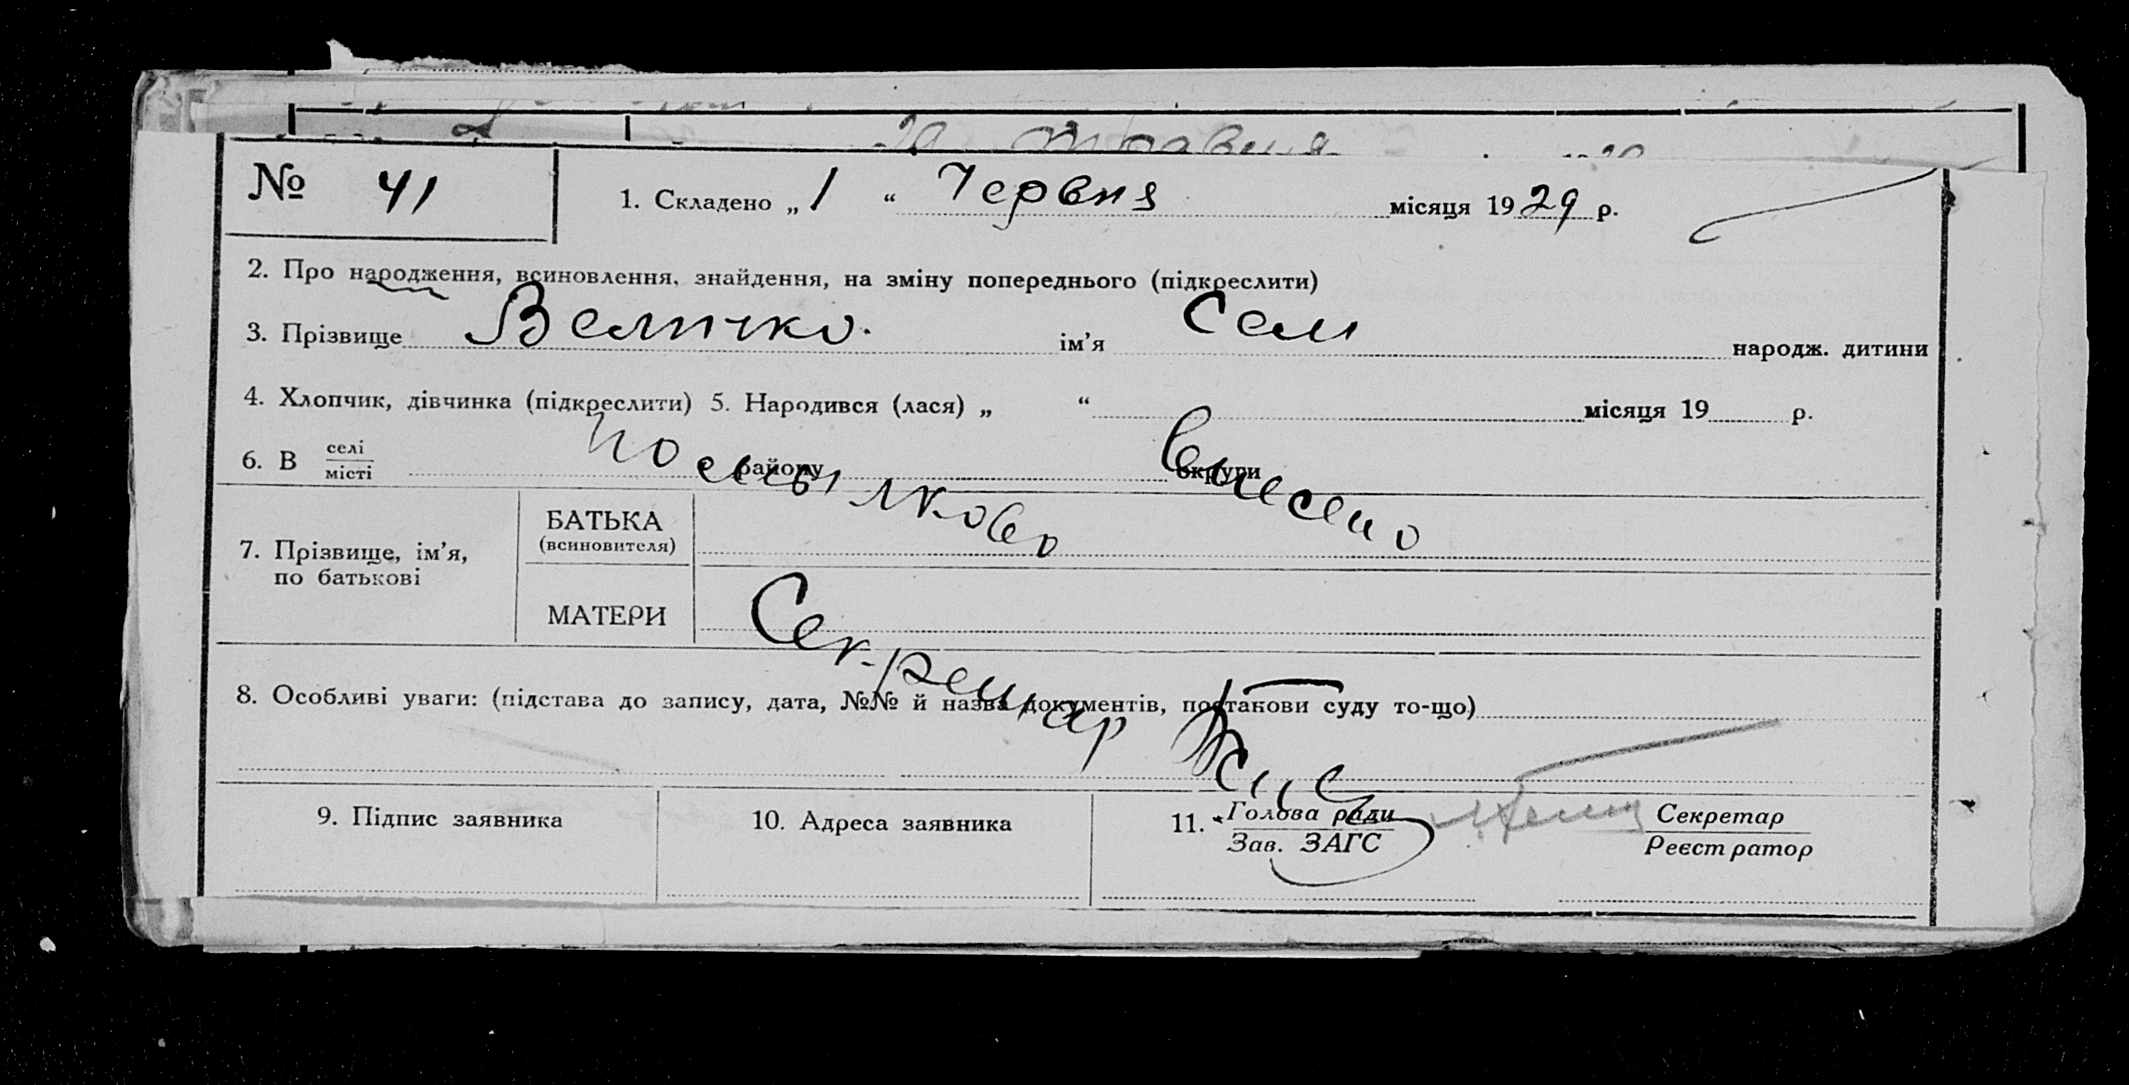 20 травня
№ 41
1. Складено „1“ Червня місяця 1929 р.
2. Про народження, всиновлення, знайдення, на зміну попереднього (підкреслити)
3. Прізвище Величко. ім’я Сем народж. дитини
4. Хлопчик, дівчинка (підкреслити) 5. Народився (лася) „ “ місяця 19 р.
6. В селі
місті
району округи
помылково внесено
7. Прізвище, ім’я,
по батькові
БАТЬКА
(всиновителя)
МАТЕРИ
Секретар
8. Особливі уваги: (підстава до запису, дата, №№ й назва документів, постанови суду то-що)
9. Підпис заявника
10. Адреса заявника
11. Голова ради
Зав. ЗАГС
Секретар
Реєстратор